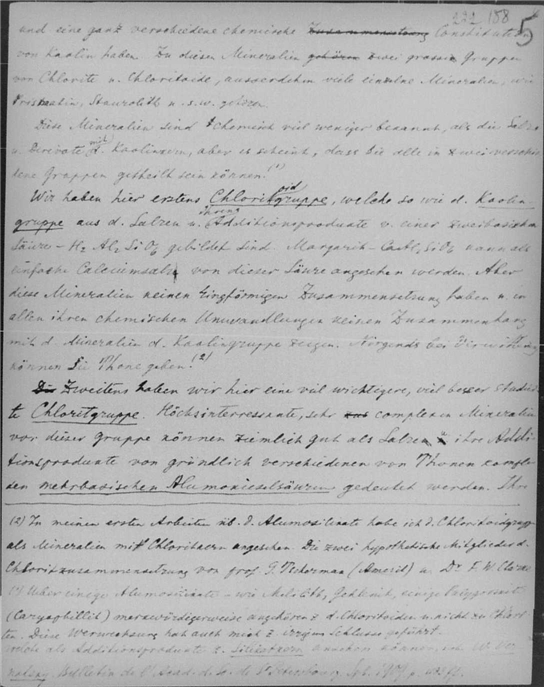 222 158 5
und eine ganz verschiedene chemische Zusammensetzung Constitution
von Kaolin haben. Zu diesen Mineralien gehören zwei grosse Gruppen
von Chlorite u. Chloritoide, ausserdem viele einzelne Mineralien, wie
Prismatin, Staurolith u.s.w. gehören
Diese Mineralien sind chemisch viel weniger bekannt, als die Salze
u. Derivate d. Kaolinkern, aber es scheint, dass sie alle in zwei verschie
dene Gruppen getheilt sein können.(1)
Wir haben hier erstens Chloritoidgruppe, welche so wie d. Kaolin-
gruppe aus d. Salzen u. ihren Additionsproducte v. einer zweibasischen
Säure - H2 Al2 SiO6 gebildet sind Margarit - CaAl2SiO6 kann als
einfache Calciumsalz von dieser Säure angesehen werden. Aber
diese Mineralien keinen Zusammensetzung haben u. in
allen ihren chemischen Umwandlungen keinen Zusammenhang
mit d. Mineralien d. Kaolingruppe zeigen. Nirgends bei Verwitterung
können sie Thone geben.(2)
Die Zweitens haben wir hier eine viel wichtigere, viel besser studier
te Chloritgruppe. Höchstinterressante, sehr complexen Mineralien
vor dieser Gruppe können ziemlich gut als Salze u ihre Addi-
tionsproducte von gründlich verschiedenen von Thonen komple-
xen mehrbasischen Alumokieselsäuren gedeutet werden. Ihr
(2) In meinen ersten Arbeiten üb. d. Alumosilicate habe ich d. Chloritoidgruppe
als Mineralien mit Chloritkern angesehen. Die zwei hypothetische Mitglieder d.
Chloritzusammensetzung von prof. G. Tschermak (Amesit) u. Dr. F. W. Clarke
(1) Ueber einige Alumosilicate - wie Melilith, Gehlenit, einige
(Caryopyllit) merkwürdigerweise angehören z d. Chloritoiden u. nicht zu Chlori-
ten. Diese Verwechslung hat auch mich z irrigen Schlusse geführt.
welche als Additionsproducte z. ansehen können, s. W. Ver
nadsky. Bulletin de l'Acad. d. Sc. de St Petersbourg 1909 p.